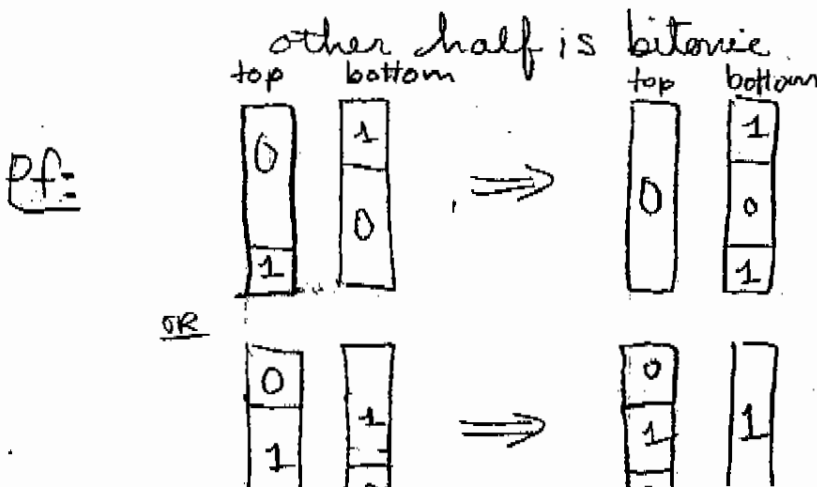 other half is bitonic
top bottom top bottom
0 1 0 1
Pf:
1 0 0 1
OR
0 1 0 1
1 0 1